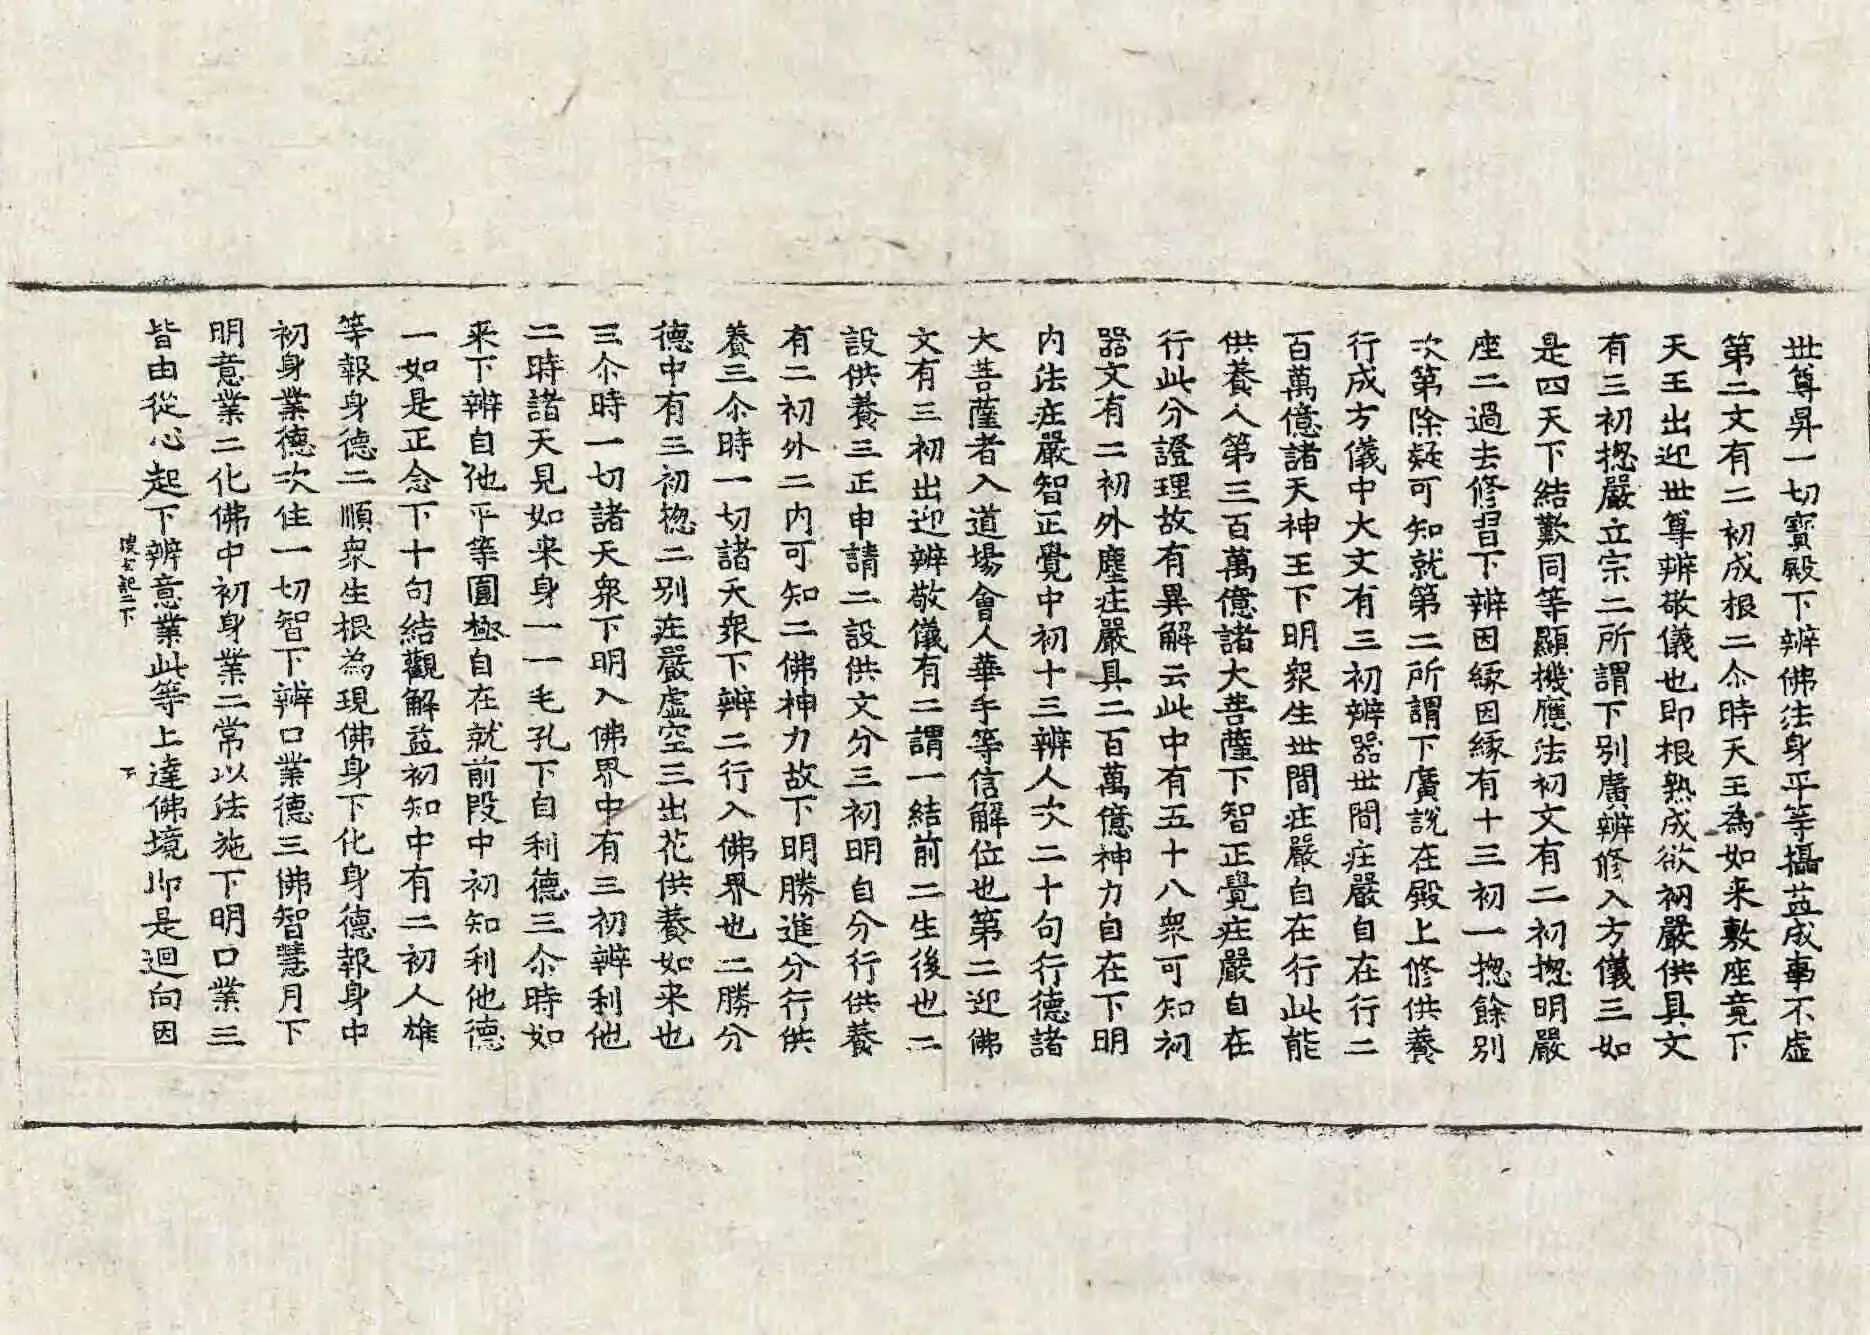 世尊昇一切寶殿下辨佛法身平等攝益成事不虛
第二文有二初成根二尒時天王為如来敷座竟下
天王出迎世尊辨敬儀也即根熟成欲初嚴供具文
有三初揔嚴立宗二所謂下別廣辨修入方儀三如
是四天下結歎同等顯機應法初文有二初揔明嚴
座二過去修習下辨因緣因緣有十三初一揔餘別
次第除疑可知就第二所謂下廣說在殿上修供養
行成方儀中大文有三初辨器世間疰嚴自在行二
百萬億諸天神王下明衆生世間疰嚴自在行此能
供養人第三百萬億諸大菩薩下智正覺疰嚴自在
行此分證理故有異解云此中有五十八衆可知初
器文有二初外塵疰嚴具二百萬億神力自在下明
内法疰嚴智正覺中初十三辨人次二十句行德諸
大菩薩者入道場會人華手等信解位也第二迎佛
文有三初出迎辨敬儀有二謂一結前二生後也二
設供養三正申請二設供文分三初明自分行供養
有二初外二内可知二佛神力故下明勝進分行供
養三尒時一切諸天衆下辨二行入佛界也二勝分
德中有三初揔二别疰嚴虛空三出花供養如来也
三尒時一切諸天衆下明入佛界中有三初辨利他
二時諸天見如来身一一毛孔下自利德三尒時如
来下辨自他平等圓極自在就前段中初知利他德
一如是正念下十句結觀解益初知中有二初人雄
等報身德二順衆生根為現佛身下化身德報身中
初身業德次住一切智下辨口業德三佛智慧月下
明意業二化佛中初身業二常以法施下明口業三
皆由從心起下辨意業此等上達佛境即是迴向因
記二下
下